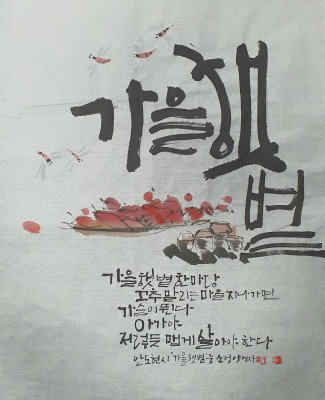 가을햇볕
가을햇볕 한마당
고추 말리는 마을 지나가면
가슴이 뛴다
아가야
저렇듯 맵게 살아야 한다
안도현 시 "가을햇볕" 중